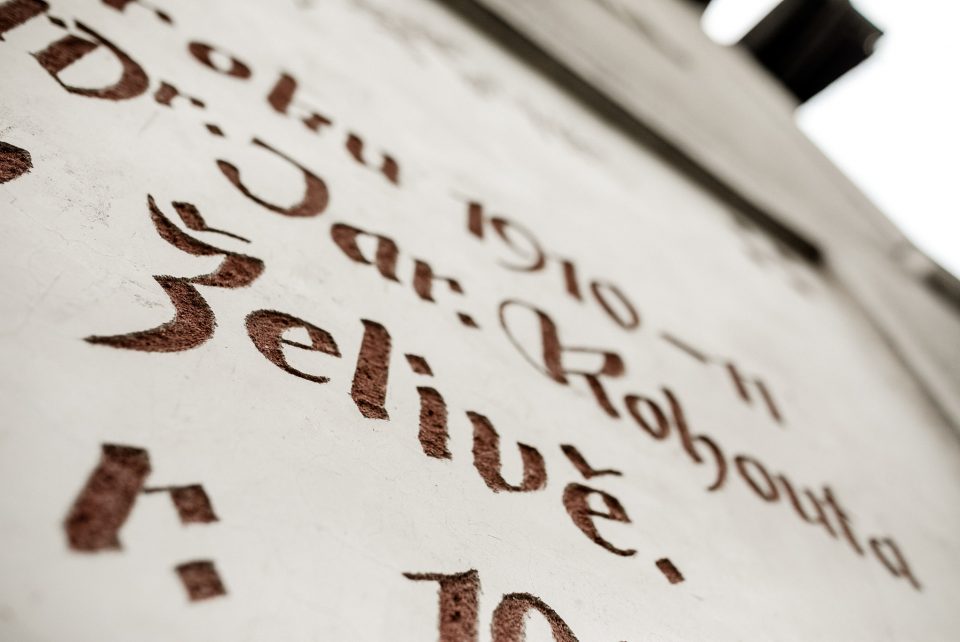 roku 1910 – 11
Dr. Jar. Kohouta
Želivě.
r.